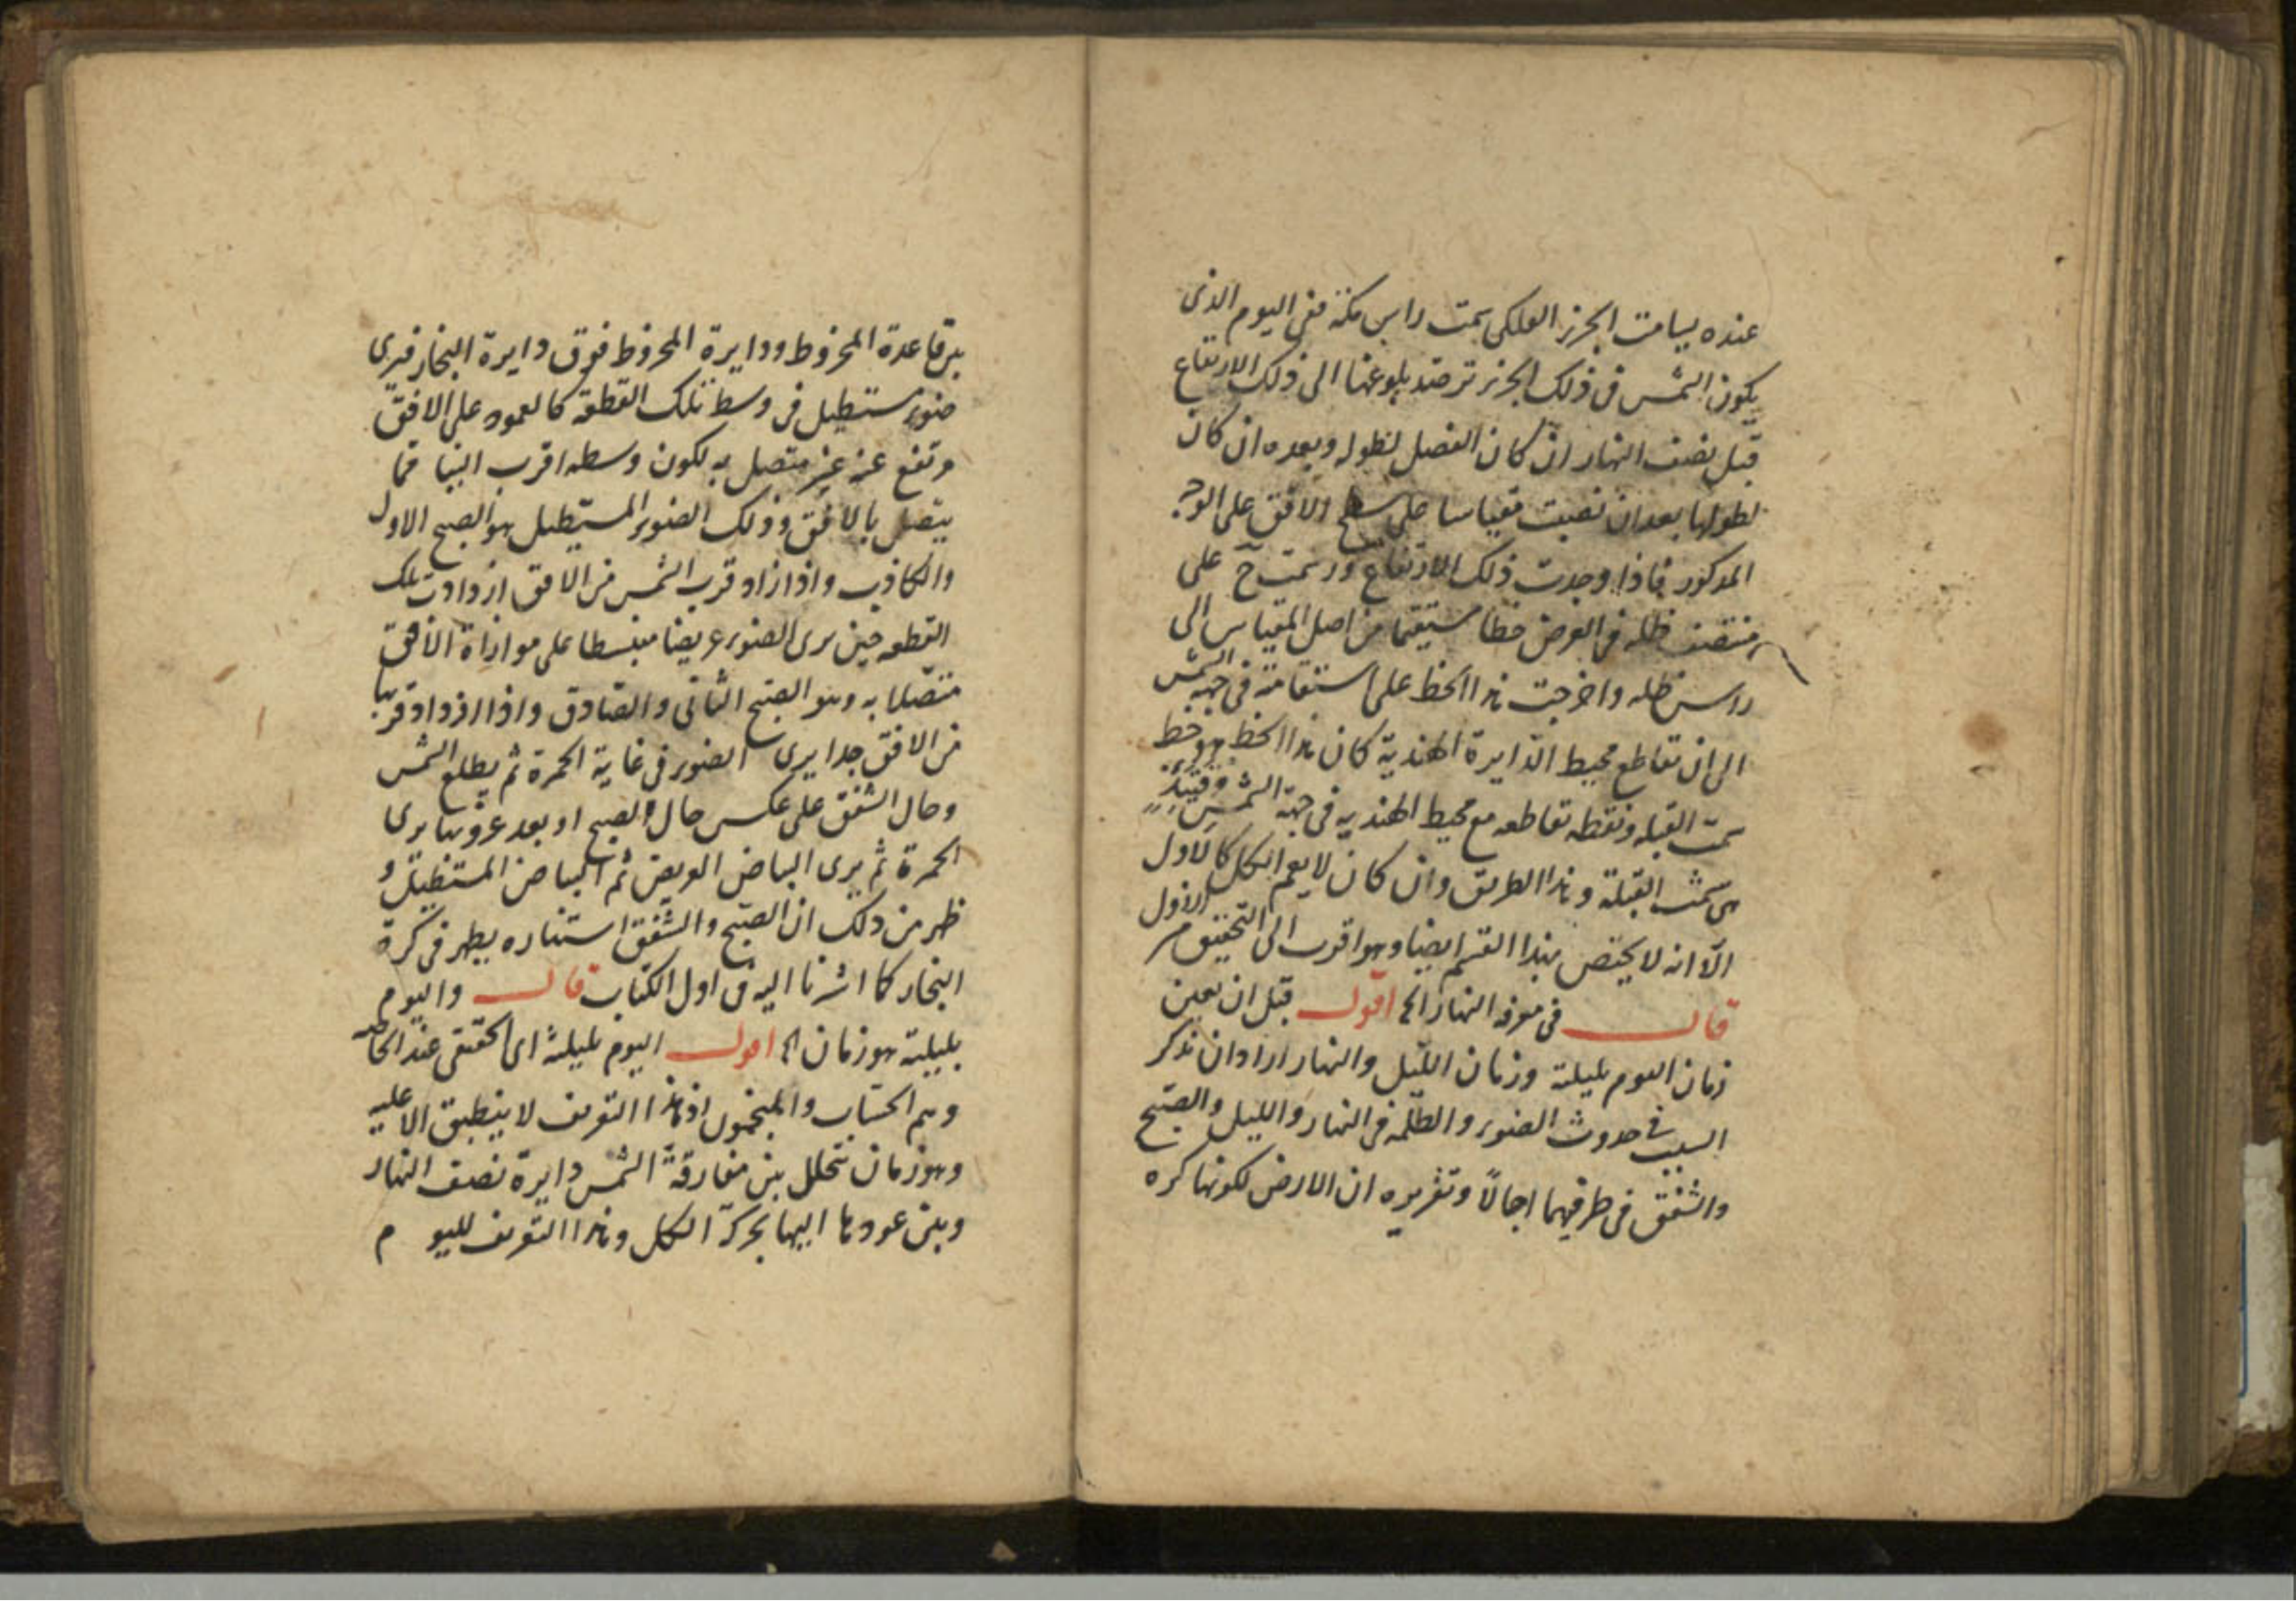 عنده يسامت الجزء الفلكى سمت راس مكة ففى اليوم الذى
يكون الشمس فى ذلك الجزء ترصد بلوغها الى ذلك الارتفاع
قبل نصف النهار ان كان الفضل لطوله وبعده ان كان
لطولها بعد ان نصبت مقياسا على سطح الافق على الوجه
المذكور فاذا وجدت ذلك الارتفاع ورسمت ح على
منتصف ظله فى العرض خطا مستقيما من اصل المقياس الى
راس ظله واخرجت هذا الخط على استقامته فى جهة الشمس
الى ان تقاطع محيط الدايرة الهندية كان هذا الخط هو خط
سمت القبله ونقطه تقاطعه مع محيط الهنديه فى جهة الشمس
هى سمت القبلة وهذا الطريق وان كان لا يعم الكل كالاول
الا انه لا يختص بهذا القسم ايضا وهو اقرب الى التحقيق من الاول
قال فى معرفه النهار الخ اقول قبل ان يعين
زمان اليوم بليلته وزمان الليل والنهار اراد ان يذكر
السبب فى حدوث الضوء والظلمه فى النهار والليل والصبح
والشفق فى طرفيهما اجمالا وتقريره ان الارض لكونها كره
بين قاعدة المخروط ودايرة المخروط فوق دايرة البخار فيرى
ضوء مستطيل فى وسط تلك القطعة كالعمود على الافق
وتقع عنه غير متصل به لكون وسطه اقرب الينا مما
يتصل بالافق وذلك الضوء المستطيل هو الصبح الاول
والكاذب واذا زاد قرب الشمس من الافق ازدادت تلك
القطعه حين يرى الضوء عريضا منبسطا على موازاة الافق
متصلا به وهو الصبح الثانى والصادق واذا ازداد قربها
من الافق جدا يرى الضوء فى غاية الحمرة ثم يطلع الشمس
وحال الشفق على عكس حال الصبح اذ بعد غروبها يرى
الحمرة ثم يرى البياض العريض ثم البياض المستطيل و
ظهر من ذلك ان الصبح والشفق استناره يظهر فى كرة
البخار كما اشرنا اليه فى اول الكتاب قال واليوم
بليلته هو زمان الخ اقول اليوم بليلته اى الحقيقى عند
وهم الحساب والمنجمون اذ هذا التعريف لا ينطبق الا عليه
وهو زمان تتخلل بين مفارقة الشمس دايرة نصف النهار
وبين عودها اليها بحركة الكل وهذا التعريف لليوم